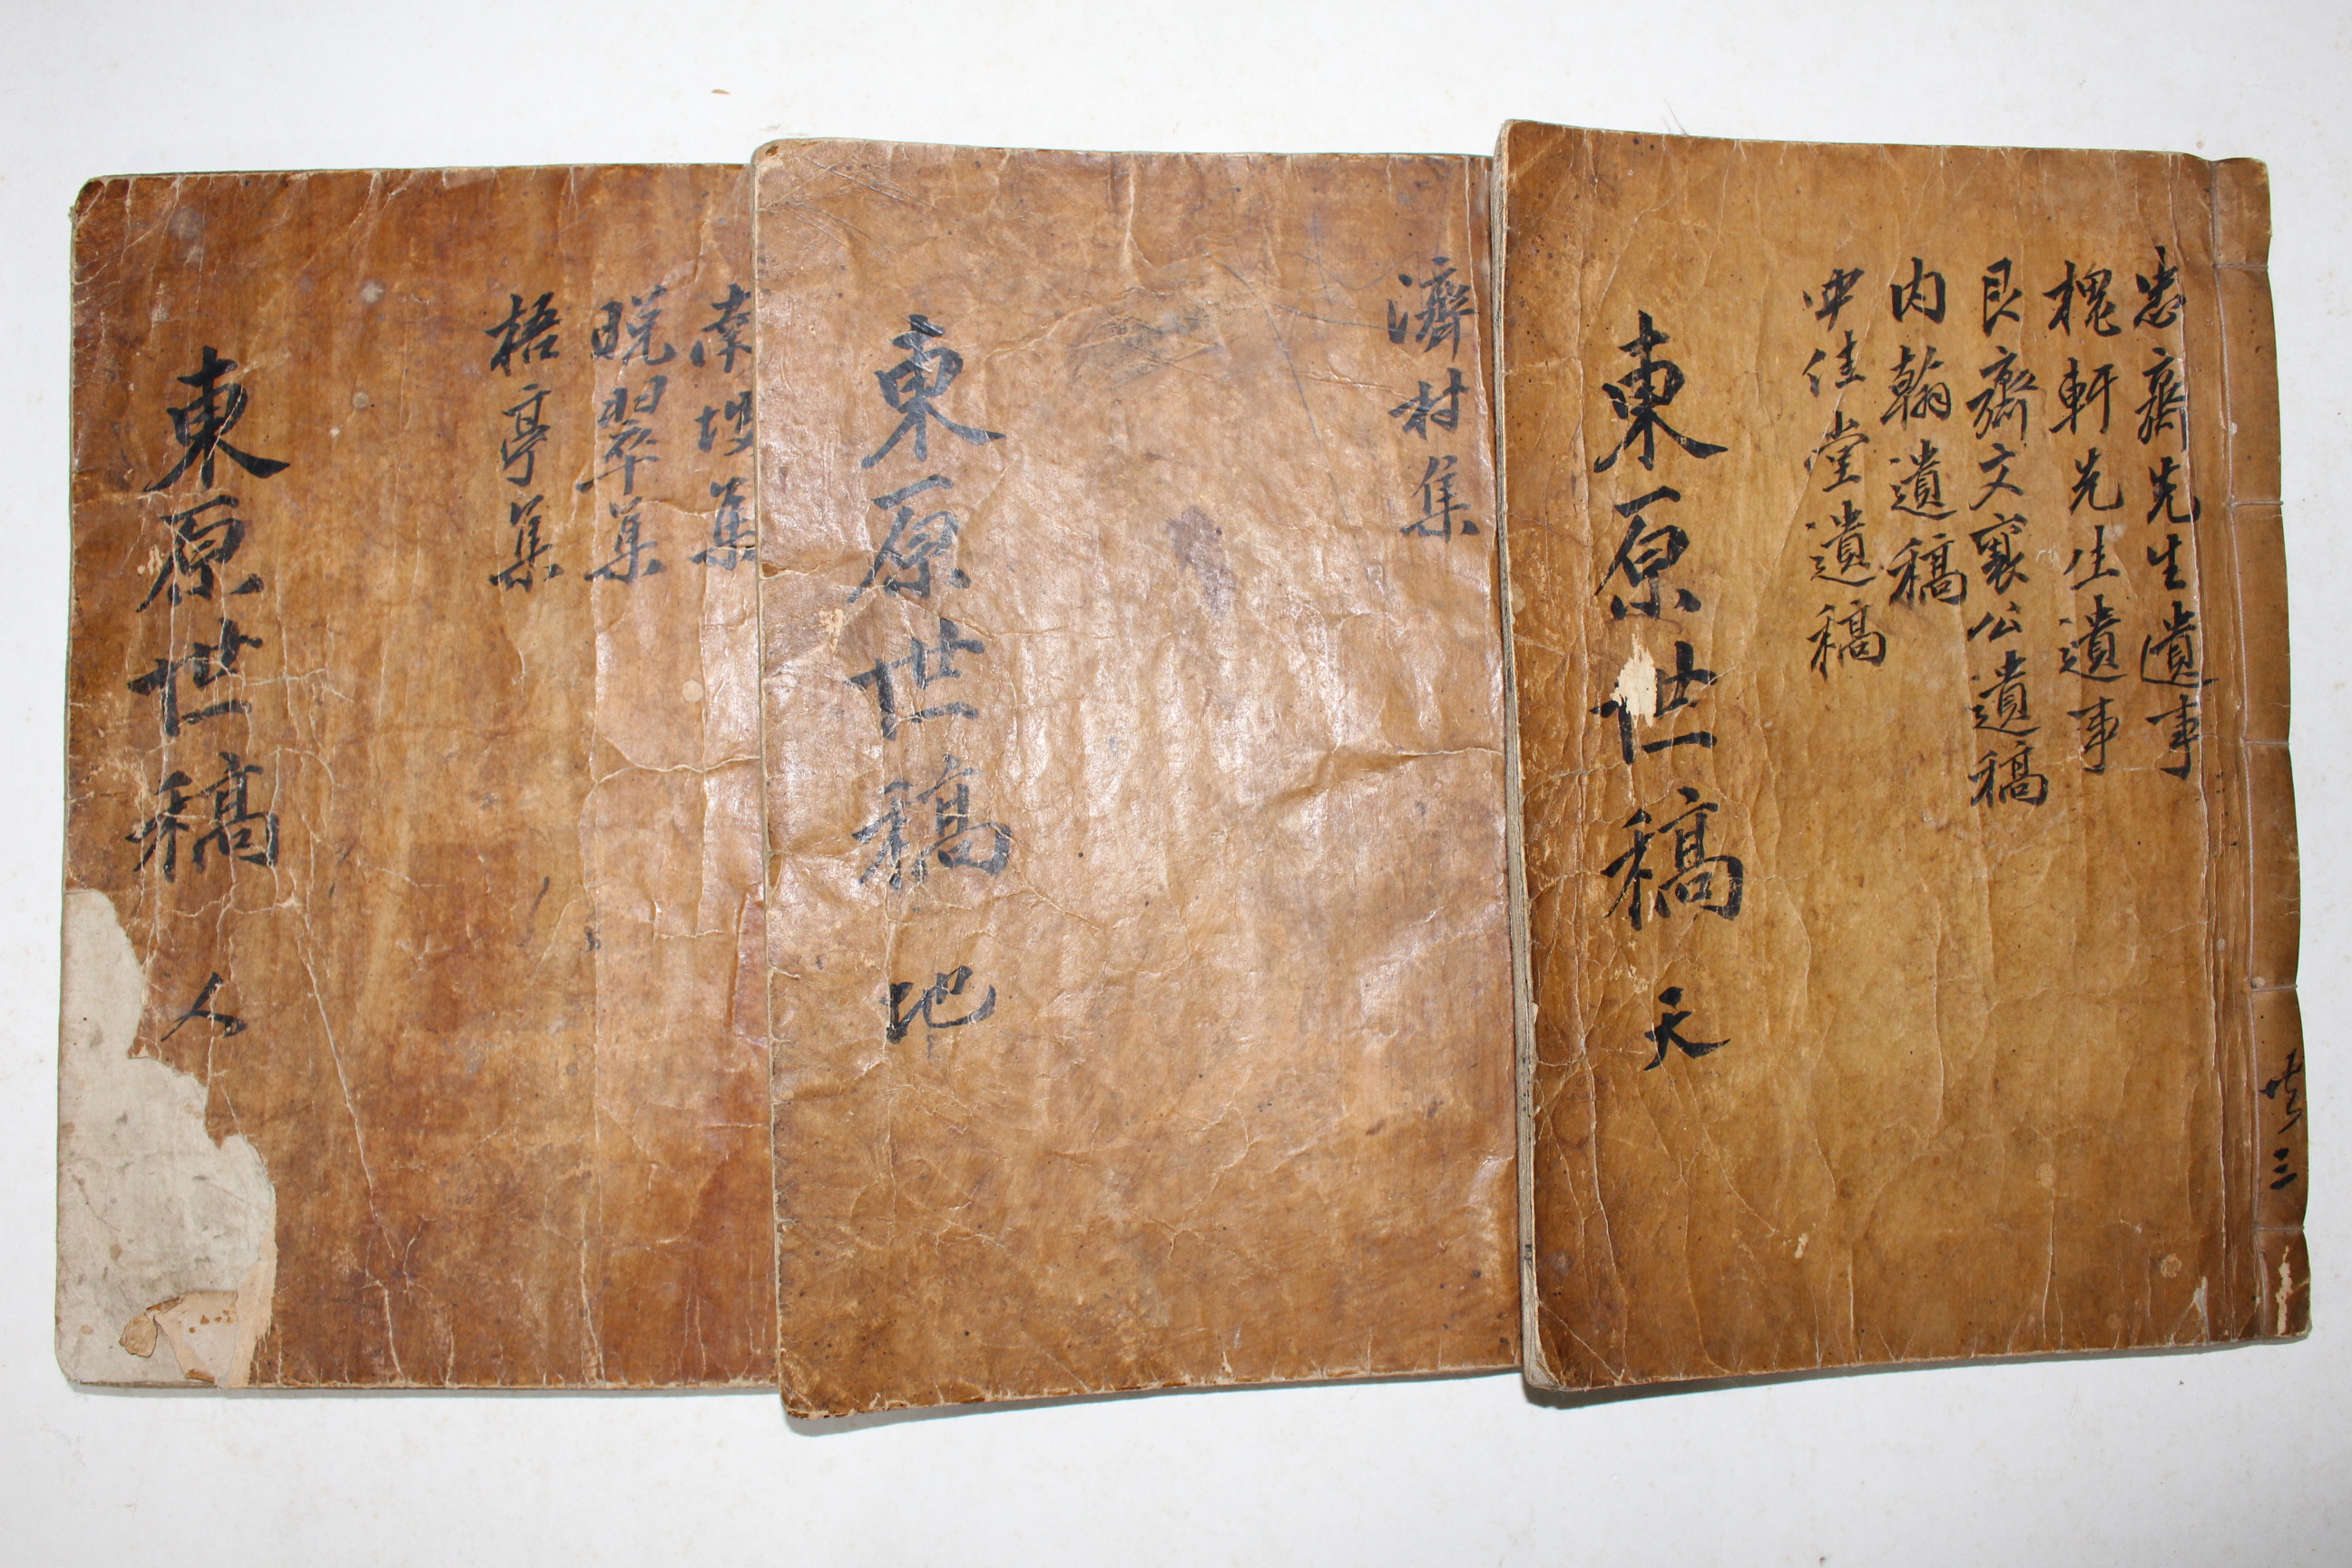 忠齋先生遺事
槐軒先生遺事
艮齋文襄公遺稿
内翰遺稿
中佳堂遺稿
東原世稿 天
共三
濟村集
東原世稿 地
南坡集
晩翠集
梧亭集
東原世稿 人